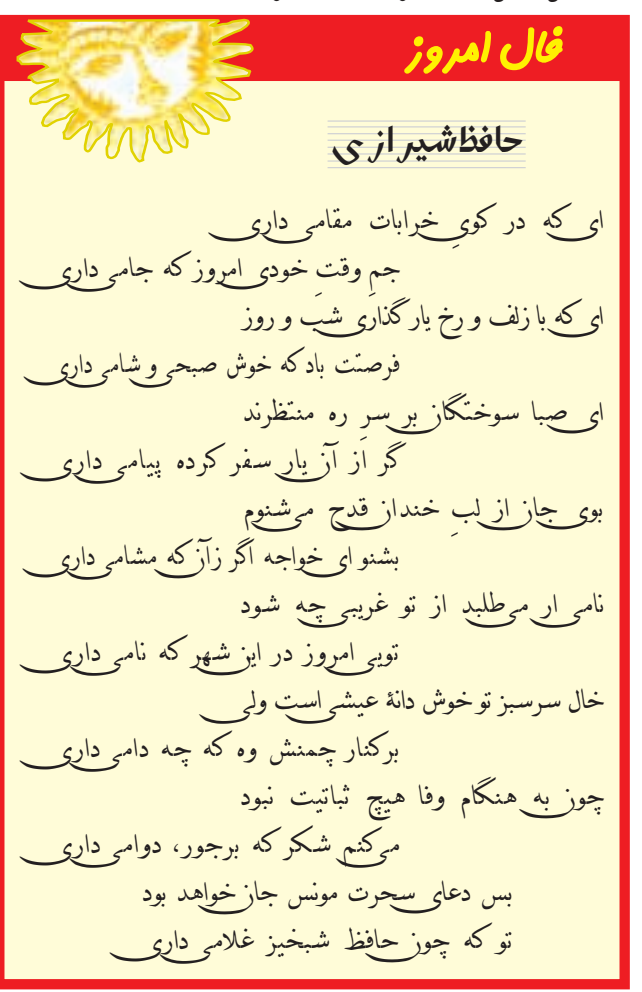 فال امروز
حافظ شیرازی
ای که در کویِ خرابات مقامی داری
جمِ وقتِ خودی امروز که جامی داری
ای که با زلف و رخ یار گذاری شب و روز
فرصتت باد که خوش صبحی و شامی داری
ای صبا سوختگان بر سرِ ره منتظرند
گر از آن یار سفر کرده پیامی داری
بوی جان از لبِ خندان قدح می‌شنوم
بشنو ای خواجه اگر زآن که مشامی داری
نامی ار می‌طلبد از تو غریبی چه شود
تویی امروز در این شهر که نامی داری
خال سرسبز تو خوش دانهٔ عیشی است ولی
برکنار چمنش وه که چه دامی داری
چون به هنگام وفا هیچ ثباتیت نبود
می‌کنم شکر که برجور، دوامی داری
بس دعای سحرت مونس جان خواهد بود
تو که چون حافظ شبخیز غلامی داری